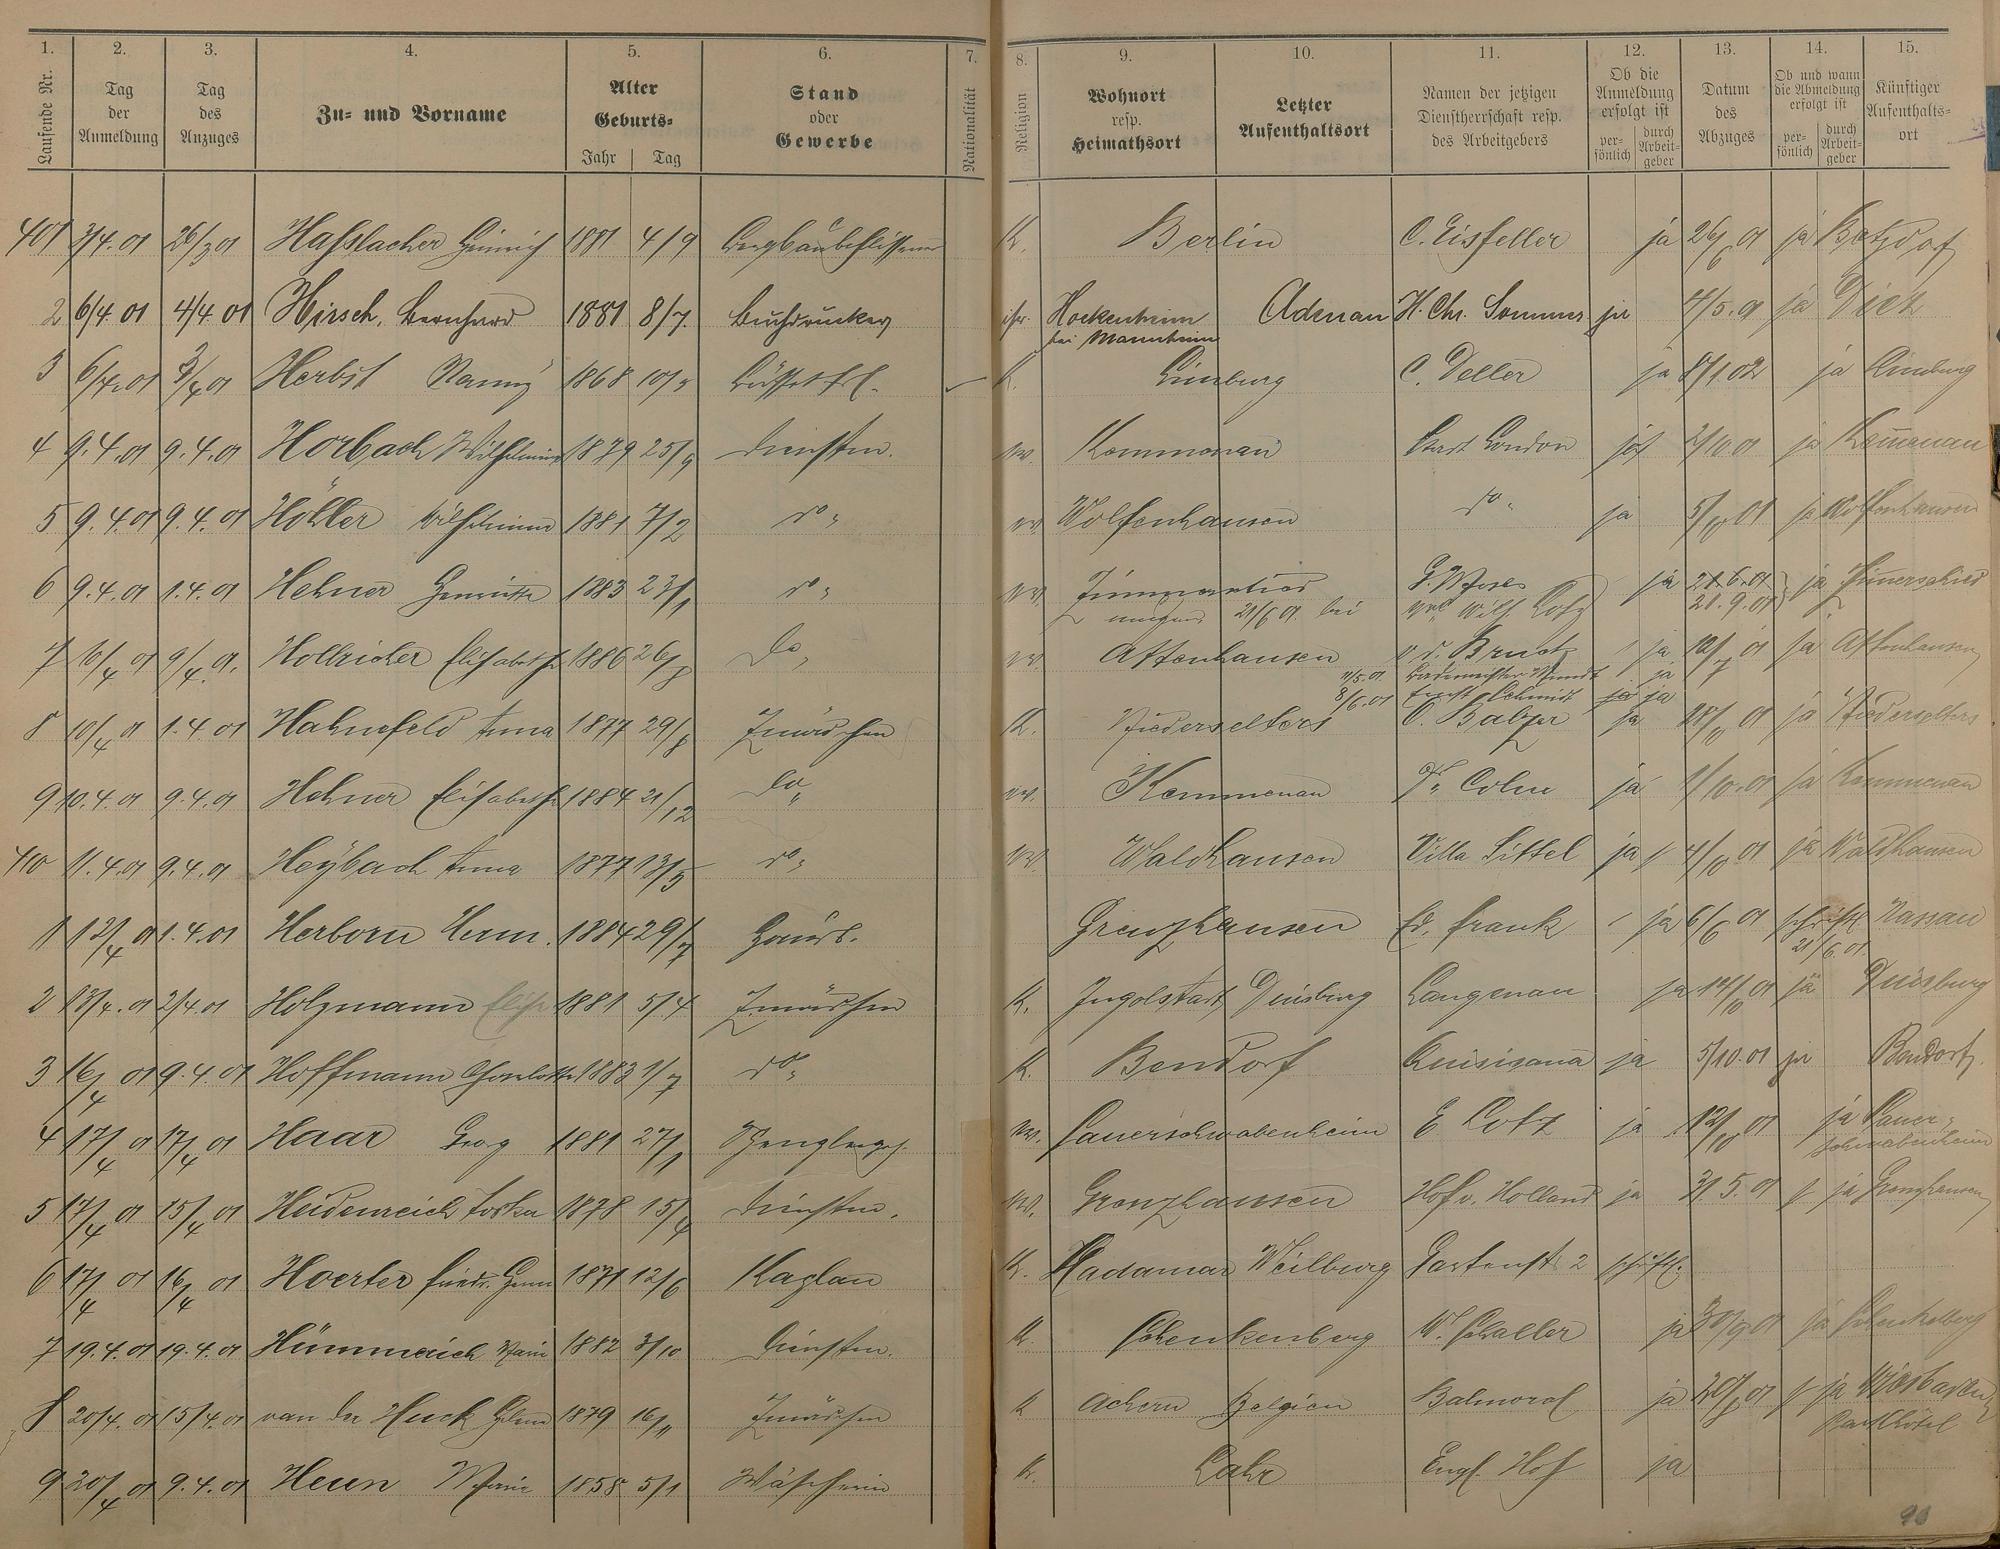 1. 2. 3. 4. 5. 6. 7. 8. 9. 10. 11. 12. 13. 14. 15.
Laufende Nr.
Tag der Anmeldung
Tag des Anzuges
Zu- und Vorname
Alter
Geburts-
Jahr Tag
Stand oder Gewerbe
Nationalität
Religion
Wohnort resp. Heimathsort
Letzter Aufenthaltsort
Namen der jetzigen Dienstherrschaft resp. des Arbeitgebers
Ob die Anmeldung erfolgt ist
per- sönlich durch Arbeit- geber
Datum des Abzuges
Ob und wann die Abmeldung erfolgt ist
per- sönlich durch Arbeit- geber
Künftiger Aufenthalts- ort
401 3/4. 01 26/3 01 Hasslacher Heinrich 1881 4/9 Bergbaubeflissener K. Berlin C. Eisfeller ja 26/6 01 ja Betzdorf
2 6/4. 01 4/4 01 Hirsch, Bernhard 1881 8/7. Buchdrucker isr. Hockenheim bei Mannheim Adenau H. Chr. Sommer ja 4/5. 01 ja Diez
3 6/4. 01 3/4 01 Herbst Nanny 1868 Büffetfrl. K. Limburg C. Deller ja 8/1 02 ja Limburg
4 9. 4. 01 9. 4. 01 Horbach Wilhelmine 1879 25/9 Dienstm. ev. Kemmenau Stadt London ja 2/10 01 ja Kemmenau
5 9. 4. 01 9. 4. 01 Höhler Wilhelmine 1881 7/2 do " ev. Wolfenhausen do " ja 5/10 01 ja Wolfenhausen
6 9. 4. 01 1. 4. 01 Hehner Henriette 1883 23/1 do " ev. Zimmerschied 21/6 01. bei G. Moses Wilh. Lotz ja 21. 6. 01 21. 9. 01 ja Zimmerschied
7 10/4 01 9/4. 01. Hollricher Elisabeth 1886 26/8 Do " ev. Attenhausen v. d. Bruck ja 10/7 01 ja Attenhausen
11/5. 01 Bademeister Mundt ja
8/6. 01 Ernst Schmidt ja
8 10/4 01 1. 4. 01 Hahnefeld Anna 1877 29/8 Zmädchen K. Niederselters C. Balzer ja 01 ja Niederselters
9 10. 4. 01 9. 4. 01 Hehner Elisabeth 1884 21/12 Do " ev. Kemmenau Dr. Colm ja 1/10. 01 ja Kemmenau
410 11. 4. 01 9. 4. 01 Heybach Anna 1877 13/5 do " ev. Waldhausen Villa Sittel ja 4/10 01 ja Waldhausen
1 12/4 01 1. 4. 01 Herborn Herm. 1884 29/7 Hausb. Grenzhausen Ed. Frank ja 6/6 01 schriftl. 21/6. 01. Nassau
2 13/4. 01 2/4. 01 Holzmann Elise 1881 5/4 Zmädchen K. Ingolstadt Duisburg Langenau ja 14/10 01 ja Duisburg
3 16/4 01 9. 4. 01 Hoffmann Charlotte 1883 1/7 do " K. Bendorf Quisisana ja 5/10. 01 ja Bendorf
4 17/4 01 17/4 01 Haar Georg 1881 27/1 Spenglerges. ev. Sauerschwabenheim E Lotz ja 12/10 01 ja Sauer- schwabenheim
5 17/4 01 15/4 01 Heidenreich Toska 1878 15/4 Dienstm. ev. Grenzhausen Hof v. Holland ja 31 5. 01 ja Grenzhausen
6 17/4 01 16/4 01 Hoerter 1871 12/6 Kaplan K. Hadamar Weilburg Gartenstr 2 schriftl.
7 19. 4. 01 19. 4. 01 Hümmerich Marie 1882 3/10 Dienstm. K. Schenkenberg W. Schaller ja 30/9 01 ja Schenkelberg
8 20/4. 01 15/4. 01 van der Huck 1879 16/11 Zmädchen K Achern Belgien Balmoral ja 01 ja Wiesbaden Parkhotel
9 20/4 01 9. 4. 01 Heun Marie 1858 5/1 Wäscherin K. Lahr Engl. Hof ja
90